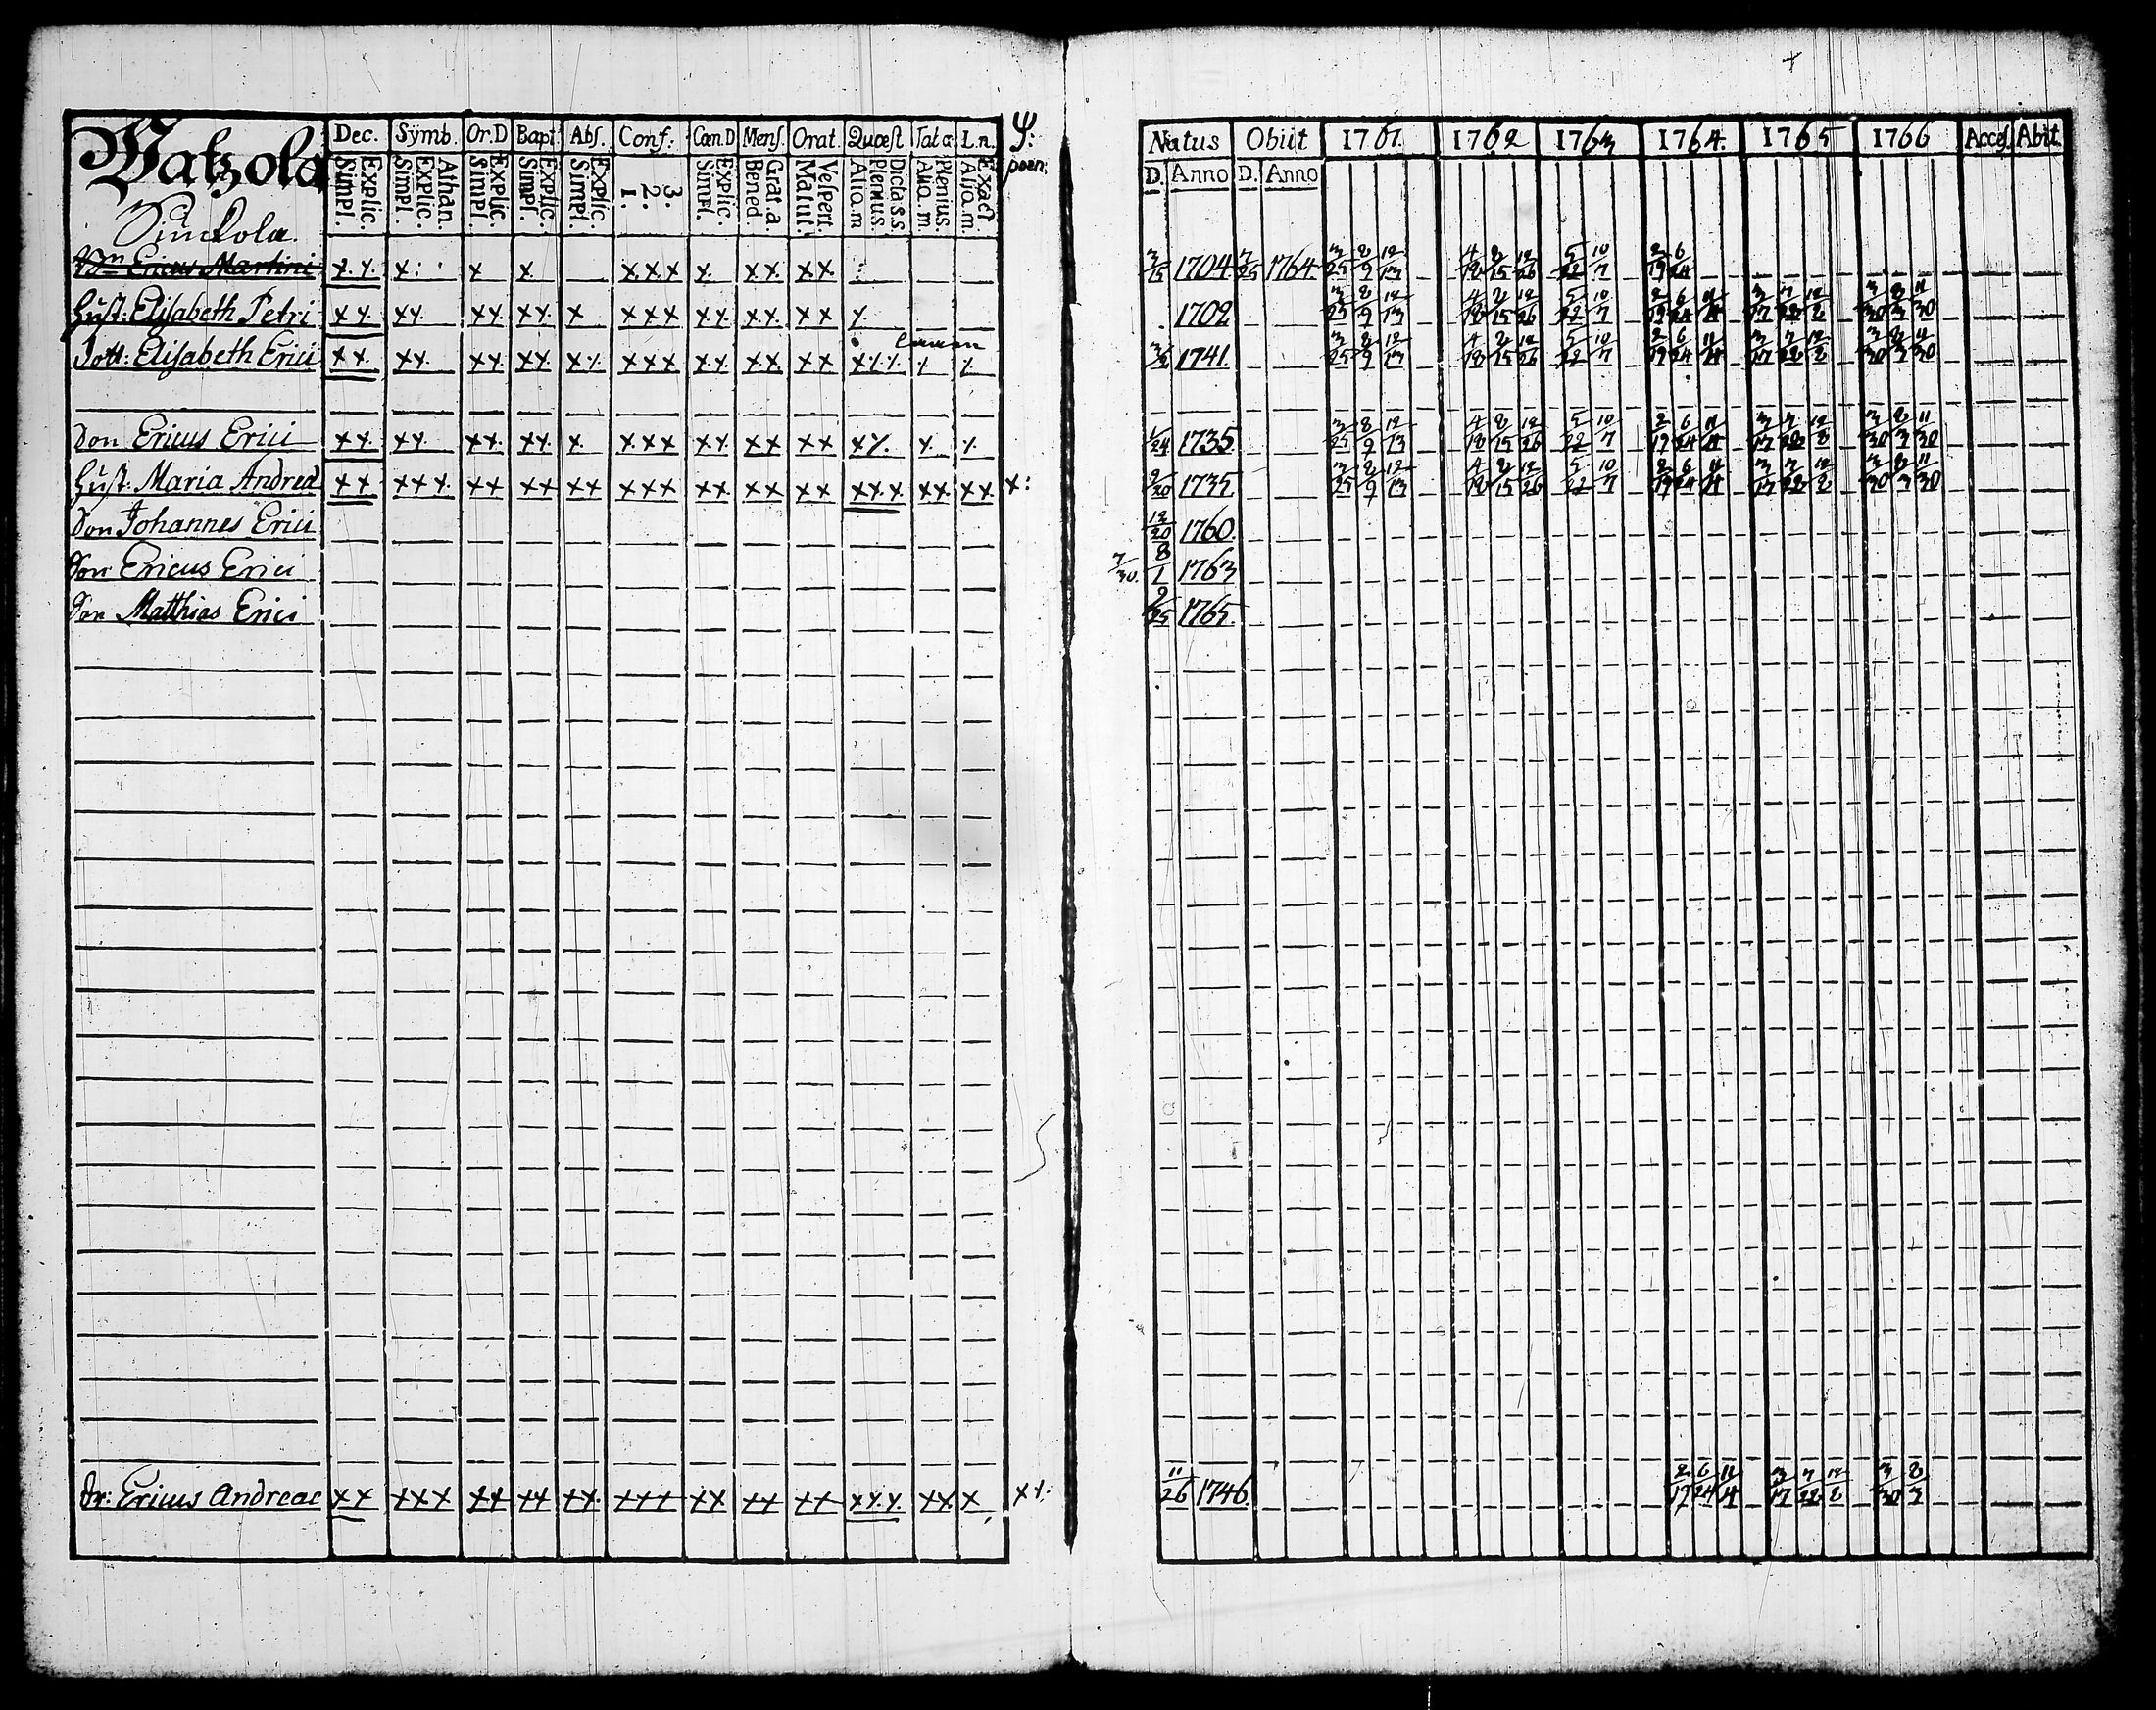 Watzola
Dec. Symb. Or.D Bapt Abs. Conf: Cœn.D Mens. Orat. Quæst Tal a. I.n. Ψ:
Explic. Simpl. Athan. Explic. Simpl. Explic. Simpl. Explic. Simpl. Explic. Simpl. 3. 2. 1. Explic. Simpl. Grat. a. Bened. Vespert. Matut. Dicta s.s. Plenius. Alio. m Plenius. Alio. m Exact Alio. m. poen:
Ericus Martini x x. x: x x x x x x. x x. x x.
Hust: Elisabeth Petri x x. x x. x x. x x. x x x x x x. x x. x x x.
Dott: Elisabeth Erici x x. x x. x x. x x. x x. x x x x x. x x. x x x x. x. x. x.
Son Ericus Erici x x. x x. x x. x x. x. x x x x x. x x x x x x. x. x.
Hust. Maria Andreæ x x x x x. x x x x x x x x x x x. x x x x x x. x. x x x x x:
Son Johannes Erici
Son Ericus Erici
Son Matthias Erici
Dr: Ericus Andreae x x x x x x x x x x x. x x x x x x x x x x x. x. x x x x x.
Natus Obiit 1761. 1762 1763 1764. 1765 1766 Acces. Abiit.
D. Anno D. Anno
3/15 1704 3/25 1764 3/25 8/9 12/13 4/18 8/15 12/26 5/22 10/7 2/19 6/24
1702 3/25 8/9 12/13 4/18 8/15 12/26 5/22 10/7 2/19 6/24 11/4 3/17 7/22 12/8 3/30 8/3 11/30
1741. 3/25 8/9 12/13 4/18 8/15 12/26 5/22 10/7 2/19 6/24 11/4 3/17 7/22 12/8 3/30 8/3 11/30
1/24 1735. 3/25 8/9 12/13 4/18 8/15 12/26 5/22 10/7 2/19 6/24 11/4 3/17 7/22 12/8 3/30 8/3 11/30
9/20 1737. 3/25 8/9 12/13 4/18 8/15 12/26 5/22 10/7 2/19 6/24 11/4 3/17 7/22 12/8 3/30 8/3 11/30
12/20 1760.
7/30. 8/1 1763
9/25 1765.
11/26 1746. 2/19 6/24 11/4 3/17 7/22 12/8 3/30 8/3